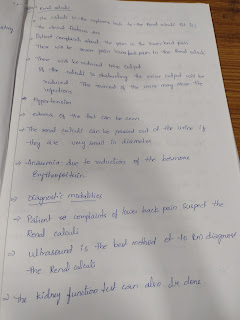 Renal calculi
→ Patient complaints about the pain in the lower back pain
There will be severe pain
→ There will be reduced urine output
If the calculi is obstructing the urine output will be
reduced. The
infections
→ Hypertension
→ edema of the feet can be seen
→ The renal calculi can be passed out of the urine if
they are very small in diameter
→ Anaemia due to reductions of the hormone
Erythropoitin.
→ Diagnostic modalities
→ Patient complaints of lower back pain suspect the
Renal calculi
→ Ultrasound is the best method to diagnosis
the Renal calculi
→ The kidney function test can also be done.